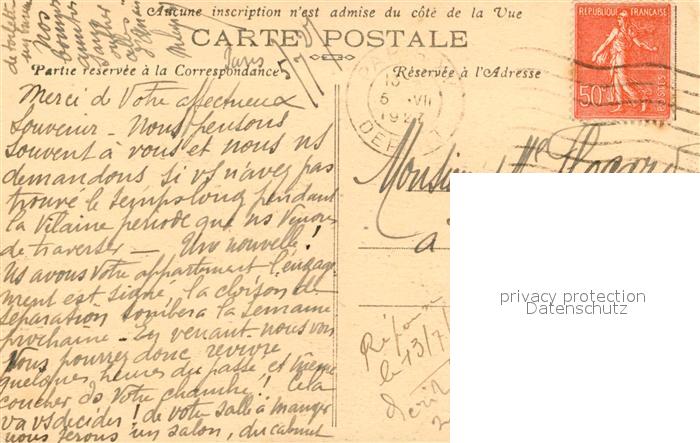 Aucune inscription n'est admise du côté de la Vue
CARTE POSTALE
Partie réservée à la Correspondance
Réservée à l'Adresse
RÉPUBLIQUE FRANÇAISE
50c
POSTES
Paris
5/7/
5 VII
1927
DEPART
Merci de Votre affectueux
souvenir - Nous pensons
souvent à vous et nous ns
demandons si vs n'avez pas
trouvé le temps long pendant
la Vilaine période que ns Venons
de traverser - Une nouvelle !
Ns avons Votre appartement l'engage
ment est signé, la cloison de
séparation tombera la semaine
prochaine - En venant nous voir
Vous pourrez donc revivre
quelques heures du passé et même
coucher ds Votre chambre !! Cela
va vs décider ! de votre salle à manger
nous ferons un salon, du cabinet
de toilette
Nos
bonnes
Monsieur
à
Réponse
le 13/7/
privacy protection
Datenschutz